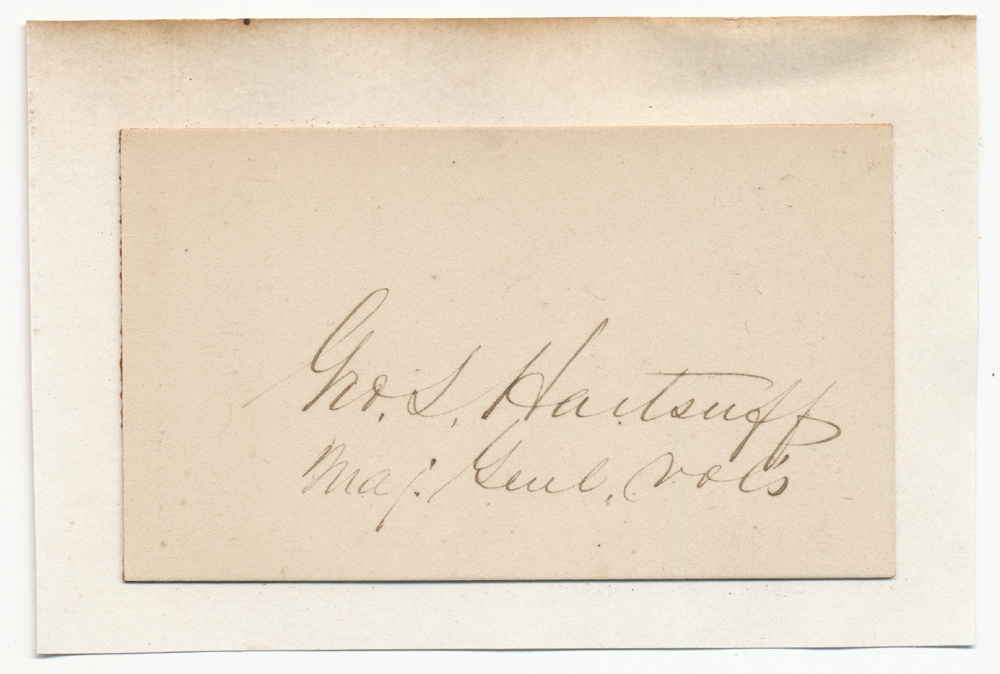 Geo. L. Hartsuff
Maj. Genl. Vols